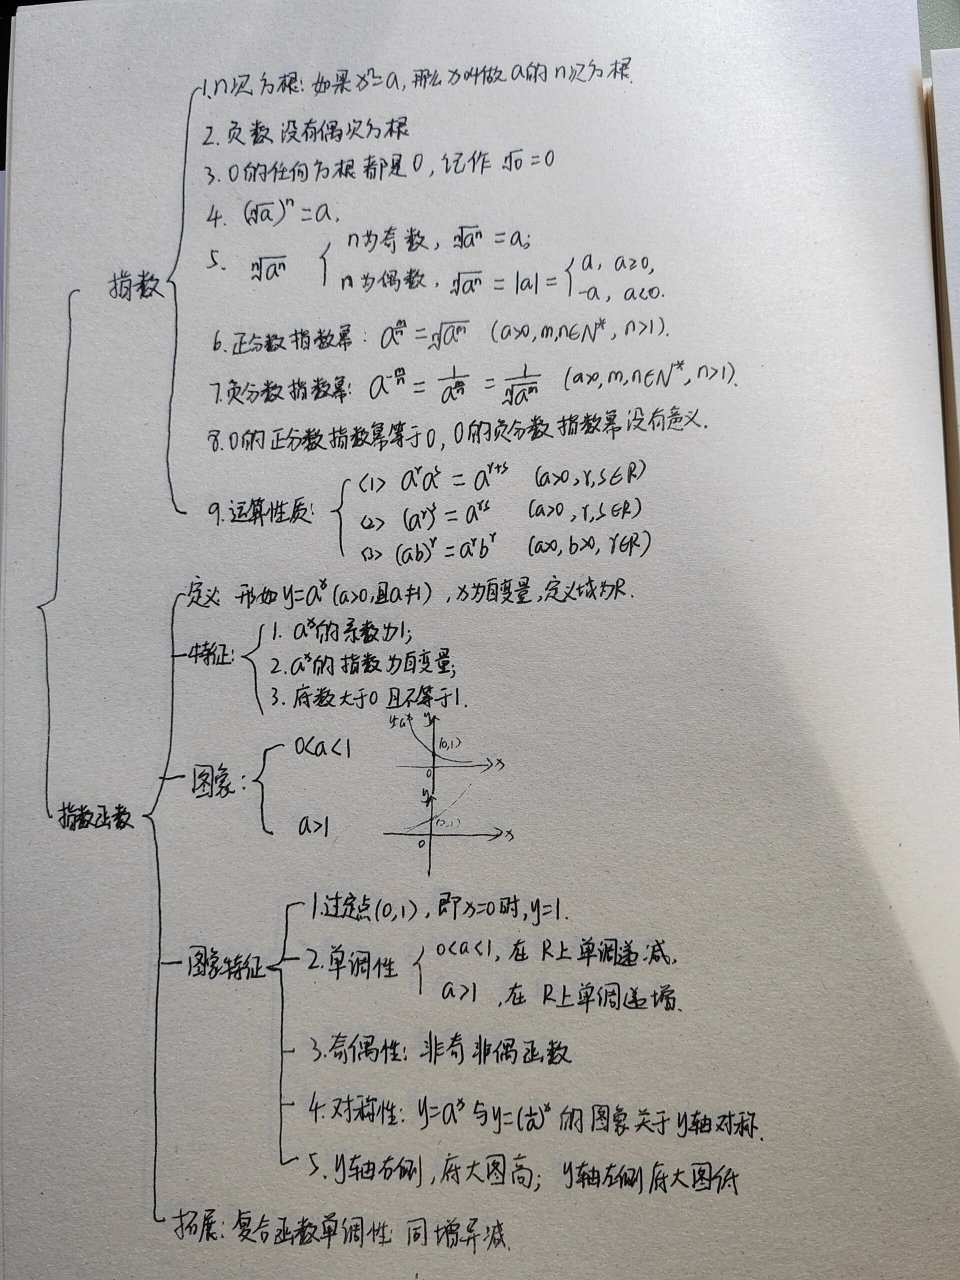 1. n次方根：如果xⁿ=a,那么x叫做a的n次方根.
2. 负数没有偶次方根
3. 0的任何方根都是0，记作 ⁿ√0=0
4. (ⁿ√a)ⁿ=a;
5. ⁿ√aⁿ { n为奇数，ⁿ√aⁿ=a;
n为偶数，ⁿ√aⁿ=|a|= { a, a≥0,
-a, a<0.
指数
6. 正分数指数幂：a^(m/n)=ⁿ√a^m (a>0,m,n∈N*, n>1).
7. 负分数指数幂：a^(-m/n)=1/a^(m/n)=1/ⁿ√a^m (a>0,m,n∈N*,n>1).
8. 0的正分数指数幂等于0，0的负分数指数幂没有意义.
9. 运算性质： { <1> a^r a^s=a^(r+s) (a>0,r,s∈R)
<2> (a^r)^s=a^(rs) (a>0,r,s∈R)
<3> (ab)^r=a^r b^r (a>0,b>0,r∈R)
定义: 形如y=a^x(a>0,且a≠1),x为自变量,定义域为R.
特征： { 1. a^x的系数为1;
2. a^x的指数为自变量;
3. 底数大于0且不等于1.
图象： { 0<a<1
y=a^x y (0,1) 0 x
a>1
y (0,1) 0 x
指数函数
图象特征
1. 过定点(0,1)，即x=0时,y=1.
2. 单调性 { 0<a<1, 在R上单调递减,
a>1 ,在R上单调递增.
3. 奇偶性：非奇非偶函数
4. 对称性：y=a^x与y=(1/a)^x的图象关于y轴对称.
5. y轴右侧，底大图高；y轴左侧底大图低
拓展：复合函数单调性 同增异减.